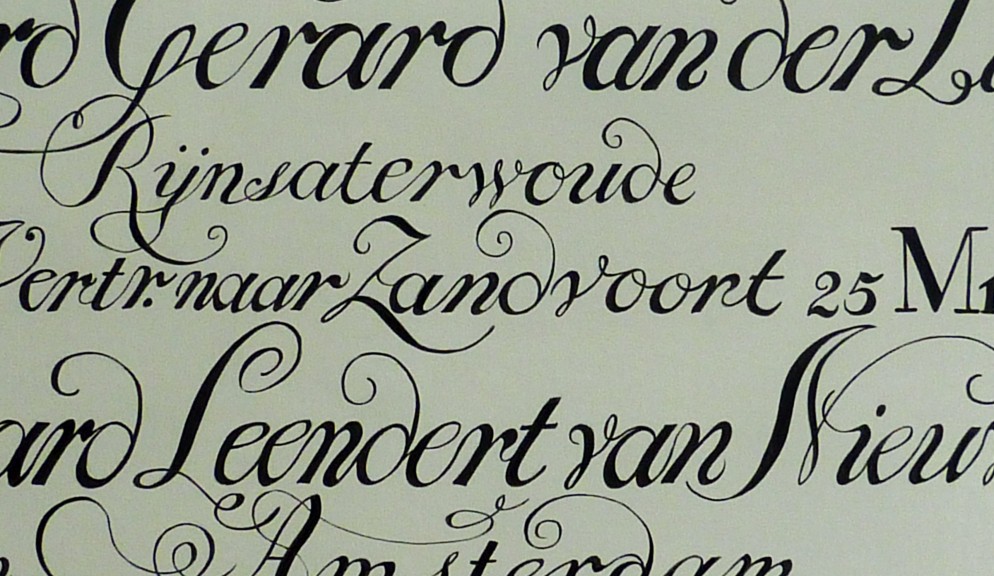 rd Gerard van der L
Rijnsaterwoude
Vertr. naar Zandvoort 25 M
ard Leendert van Nieuw
Amsterdam